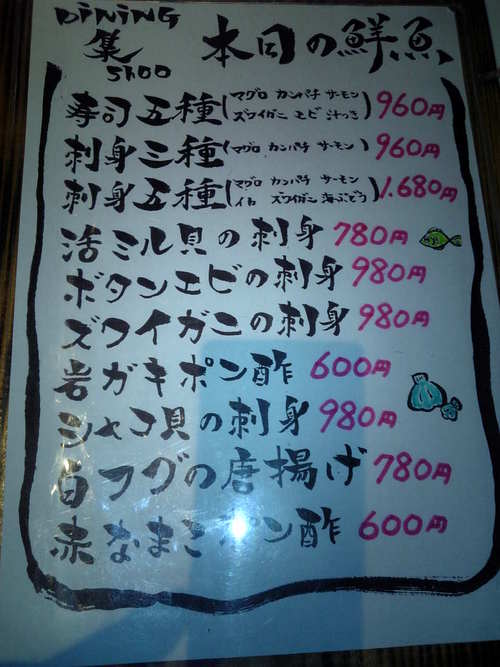 DINING
集
SHOO
本日の鮮魚
寿司五種(マグロ カンパチ サーモン ズワイガニ エビ 汁つき) 960円
刺身三種(マグロ カンパチ サーモン) 960円
刺身五種(マグロ カンパチ サーモン イカ ズワイガニ 海ぶどう) 1.680円
活ミル貝の刺身 780円
ボタンエビの刺身 980円
ズワイガニの刺身 980円
岩ガキポン酢 600円
シャコ貝の刺身 980円
白フグの唐揚げ 780円
赤なまこポン酢 600円